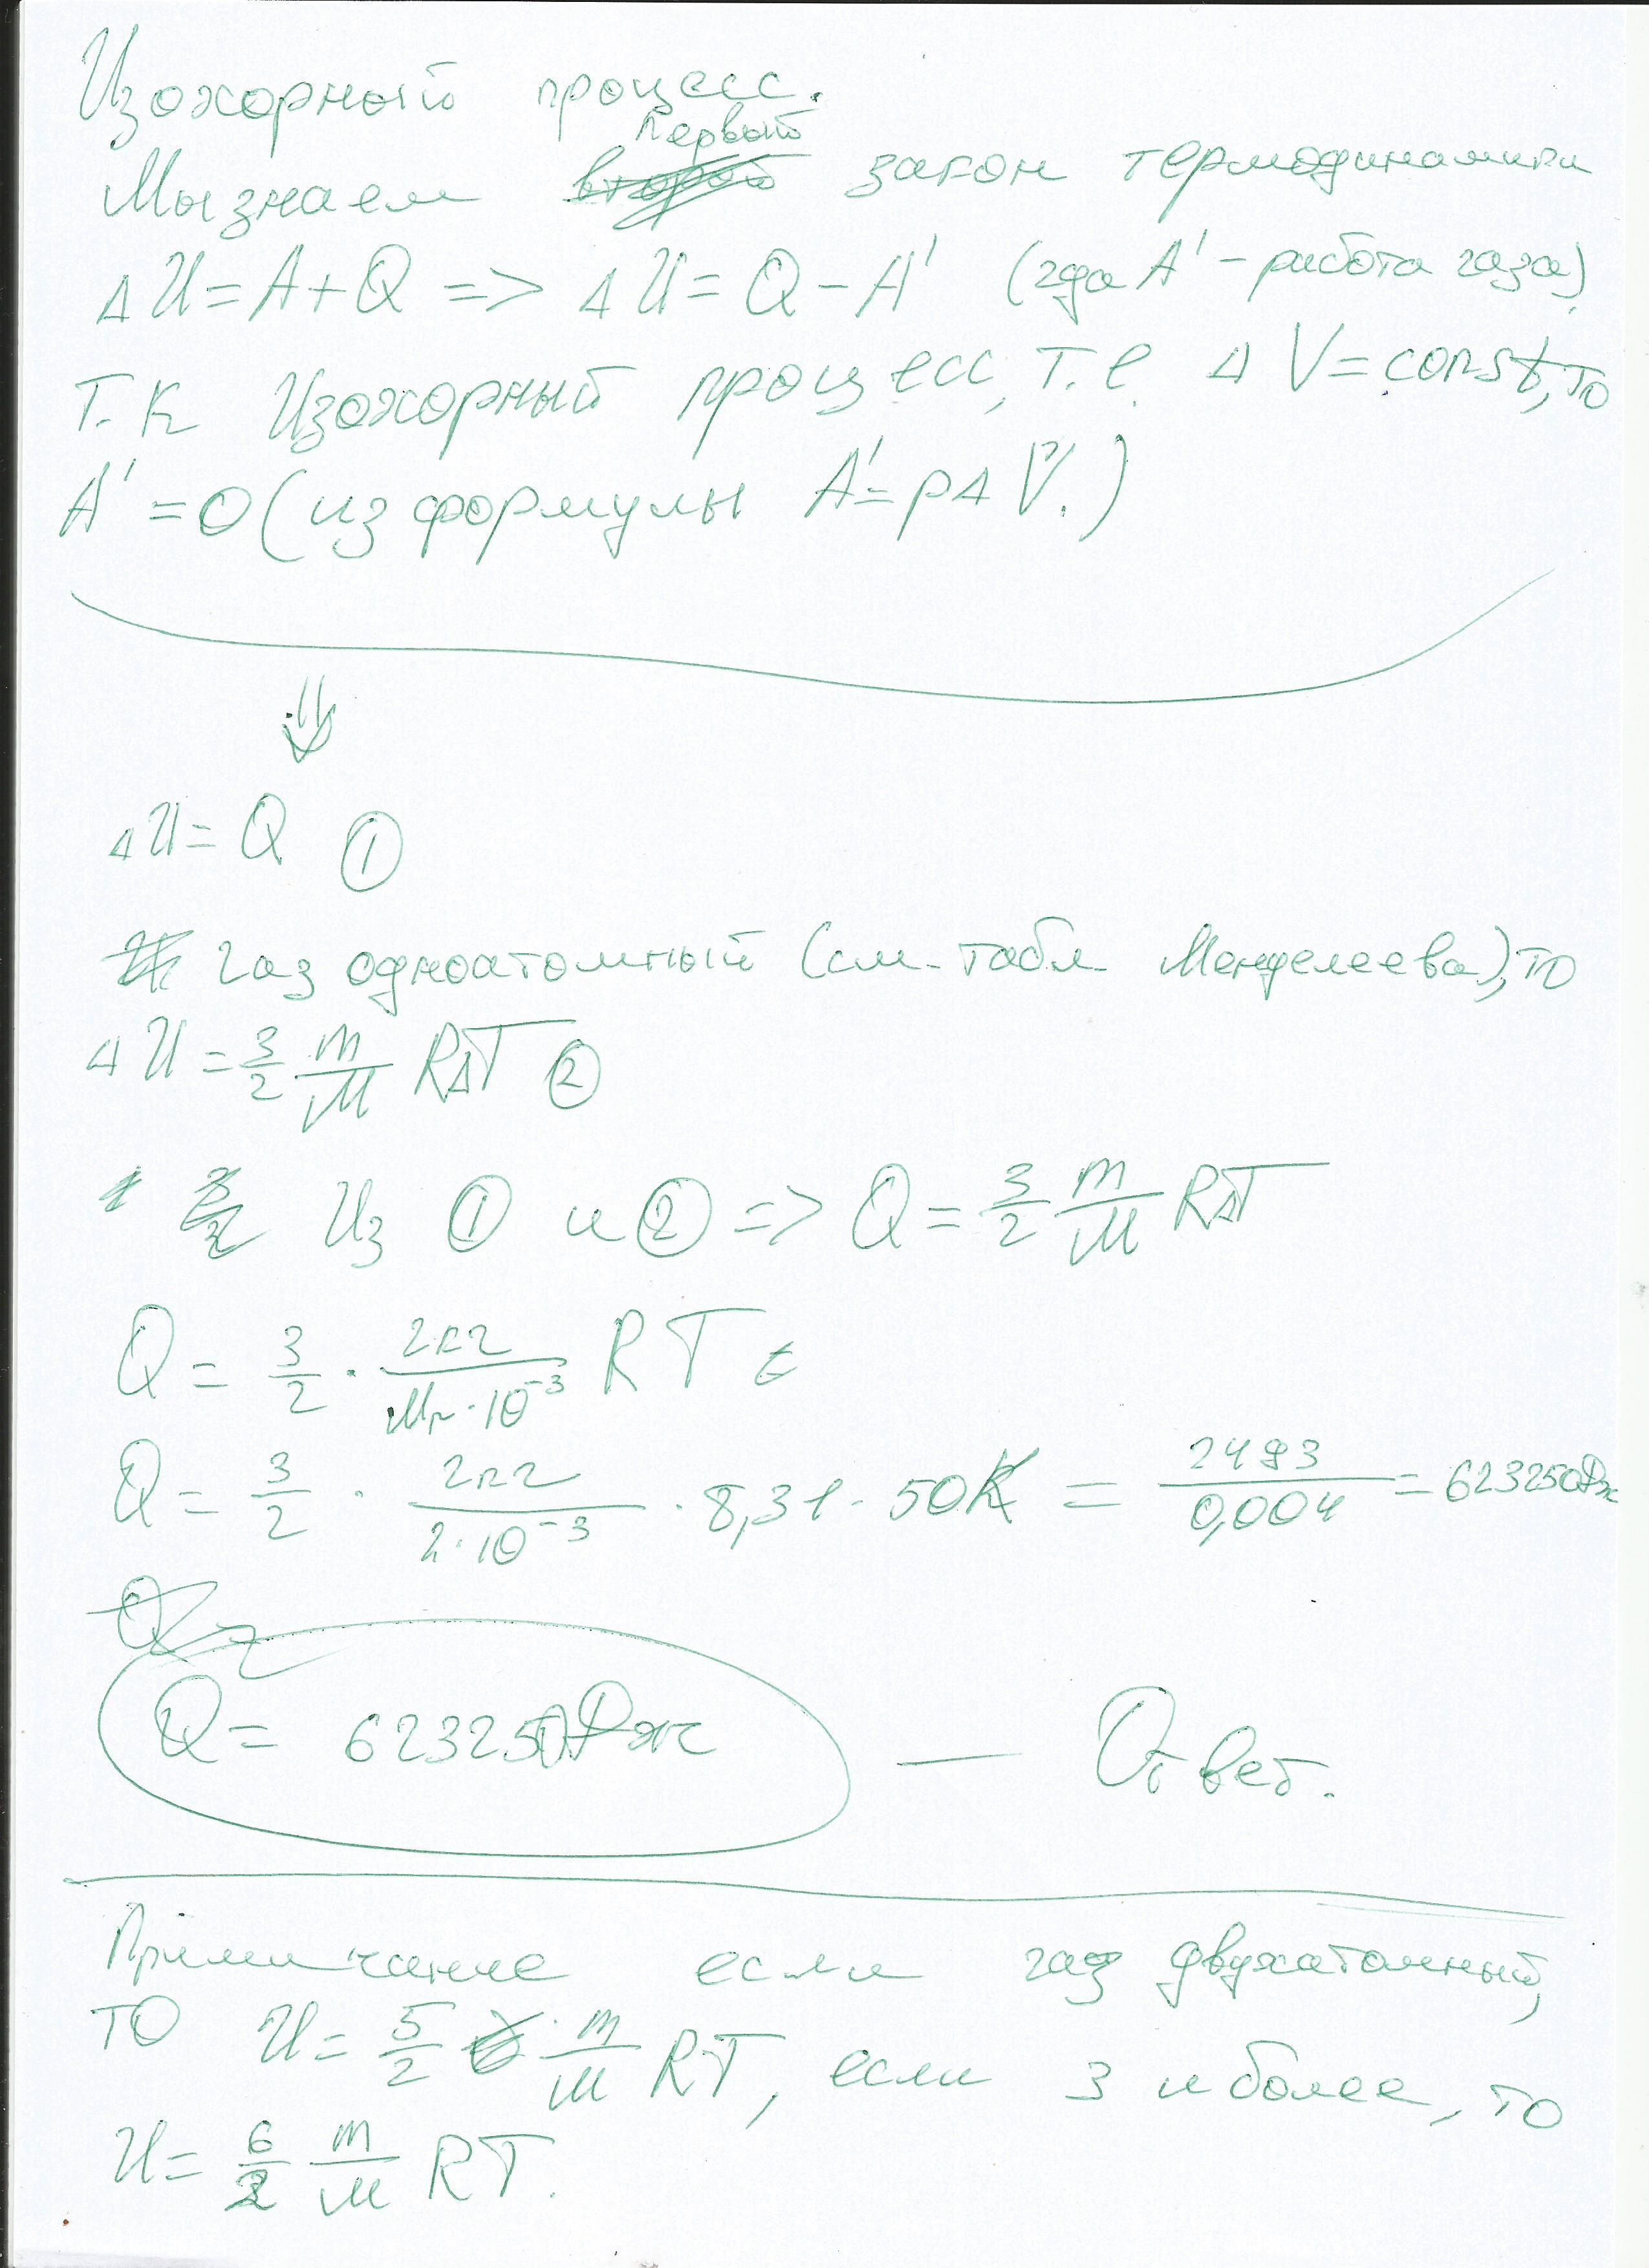 Изохорный процесс.
Мы знаем первый закон термодинамики
ΔU = A + Q => ΔU = Q - A' (где A' - работа газа)
Т.к Изохорный процесс, т.е. ΔV = const, то
A' = 0 (из формулы A' = pΔV.)
⇓
ΔU = Q ①
газ одноатомный (см. табл. Менделеева), то
ΔU = 3/2 m/M RΔT ②
Из ① и ② => Q = 3/2 m/M RΔT
Q = 3/2 · 2кг/Mr·10⁻³ RT
Q = 3/2 · 2кг/2·10⁻³ · 8,31 · 50K = 2493/0,004 = 623250Дж
Q = 623250Дж — Ответ.
Примичание если газ двухатомный,
то U = 5/2 · m/M RT, если 3 и более, то
U = 6/2 m/M RT.